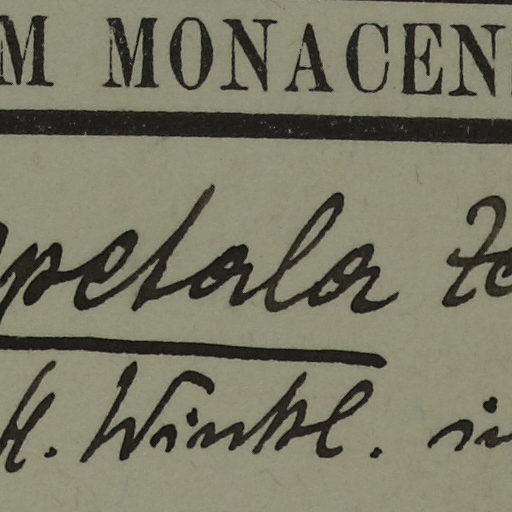 M MONACEN
petala
H. Winkl. in